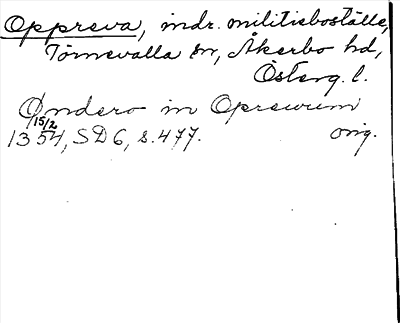 Oppreva, indr. militieboställe,
Törnevalla sn, Åkerbo hd,
Österg. l.
Øndero in Opreuum
15/2
1354, SD 6, s. 477. orig.